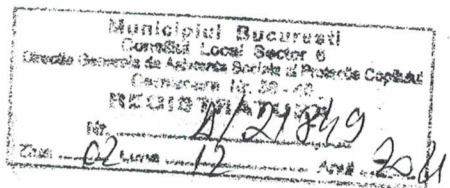 Municipiul Bucuresti
Consiliul Local Sector 6
Directia Generala de Asistenta Sociala si Protectia Copilului
Nr. 38 - 40
REGISTRATURA
Nr. A/21849
Ziua 02 Luna 12 Anul